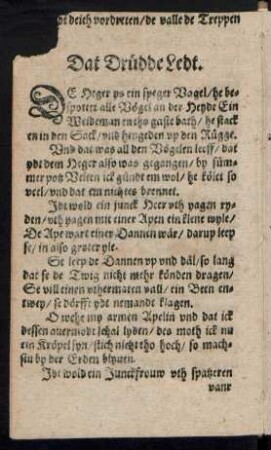 deich vordreten / de valle de Treppen
Dat Drüdde Ledt.
DE Heger ys ein speger Vagel / he be-
spottet alle Vögel an der Heyde Ein
Weideman en tho gaste bath / he stack
en in den Sack / vnd hengeden vp den Rügge.
Vnd dat was all den Vögelen leeff / dat
ydt dem Heger also was gegangen / by
mer potz Velten ick gündt em wol / he kölet so
veel / vnd dat em nichtes brennet.
Idt wold ein junck Heer vth yagen ry-
den / vth yagen mit einer Apen ein klene wyle /
De Ape wart einer Dannen wär / darup leep
se / in also groter yle.
Se leep de Dannen vp vnd däl / so lang
dat se de Twig nicht mehr könden dragen /
Se vill einen vthermaten vall / ein Been en-
twey / se dörfft ydt nemandt klagen.
O wehe my armen Apelin vnd dat ick
dessen auermodt schal lyden / des moth ick nu
ein Kröpel syn / stich nicht tho hoch / so mach-
stu by der Erden blyuen.
Idt wold ein Junckfrouw vth spatzeren